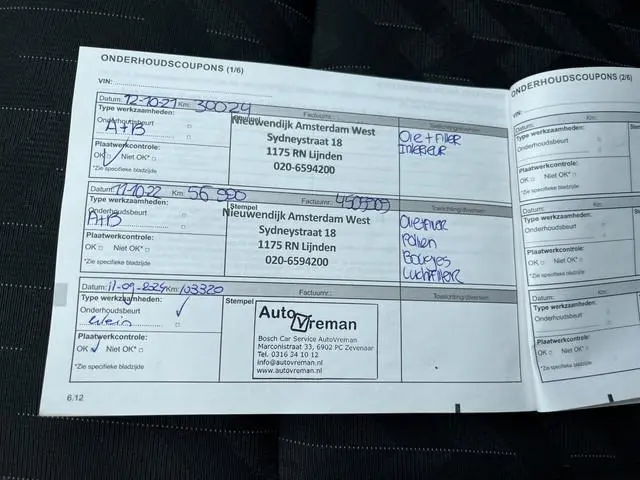 ONDERHOUDSCOUPONS (1/6)
VIN:
Datum: 12-10-21 Km: 30024 Factuurnr.:
Type werkzaamheden:
Onderhoudsbeurt
A+B
Plaatwerkcontrole:
OK Niet OK*
*Zie specifieke bladzijde
Nieuwendijk Amsterdam West
Sydneystraat 18
1175 RN Lijnden
020-6594200
Olie+Filter
Interieur
Datum: 11-10-22 Km: 56 990 Factuurnr.:
Type werkzaamheden:
Onderhoudsbeurt
A+B
Plaatwerkcontrole:
OK Niet OK*
*Zie specifieke bladzijde
Stempel
Nieuwendijk Amsterdam West
Sydneystraat 18
1175 RN Lijnden
020-6594200
Toelichting/diversen:
Oliefilter
Pollen
Bougies
Luchtfilter
Datum: 11-09-2024 Km: 103320 Factuurnr.:
Type werkzaamheden:
Onderhoudsbeurt
klein
Plaatwerkcontrole:
OK Niet OK*
*Zie specifieke bladzijde
Stempel
Auto Vreman
Bosch Car Service AutoVreman
Marconistraat 33, 6902 PC Zevenaar
Tel. 0316 34 10 12
info@autovreman.nl
www.autovreman.nl
Toelichting/diversen:
6.12
ONDERHOUDSCOUPONS (2/6)
VIN:
Datum:
Type werkzaamheden:
Onderhoudsbeurt
Plaatwerkcontrole:
OK Niet OK*
*Zie specifieke bladzijde
Datum:
Type werkzaamheden:
Onderhoudsbeurt
Plaatwerkcontrole:
OK Niet OK*
*Zie specifieke bladzijde
Datum:
Type werkzaamheden:
Onderhoudsbeurt
Plaatwerkcontrole:
OK Niet OK*
*Zie specifieke bladzijde